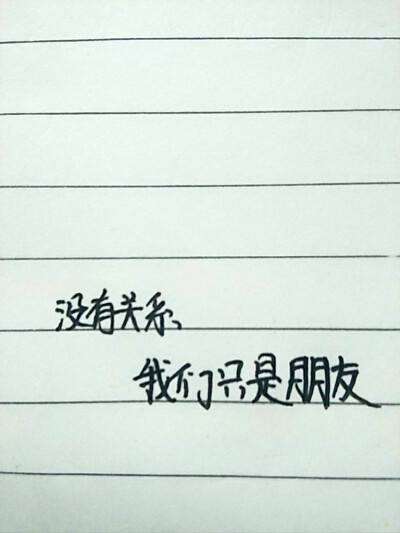 没有关系、
我们只是朋友